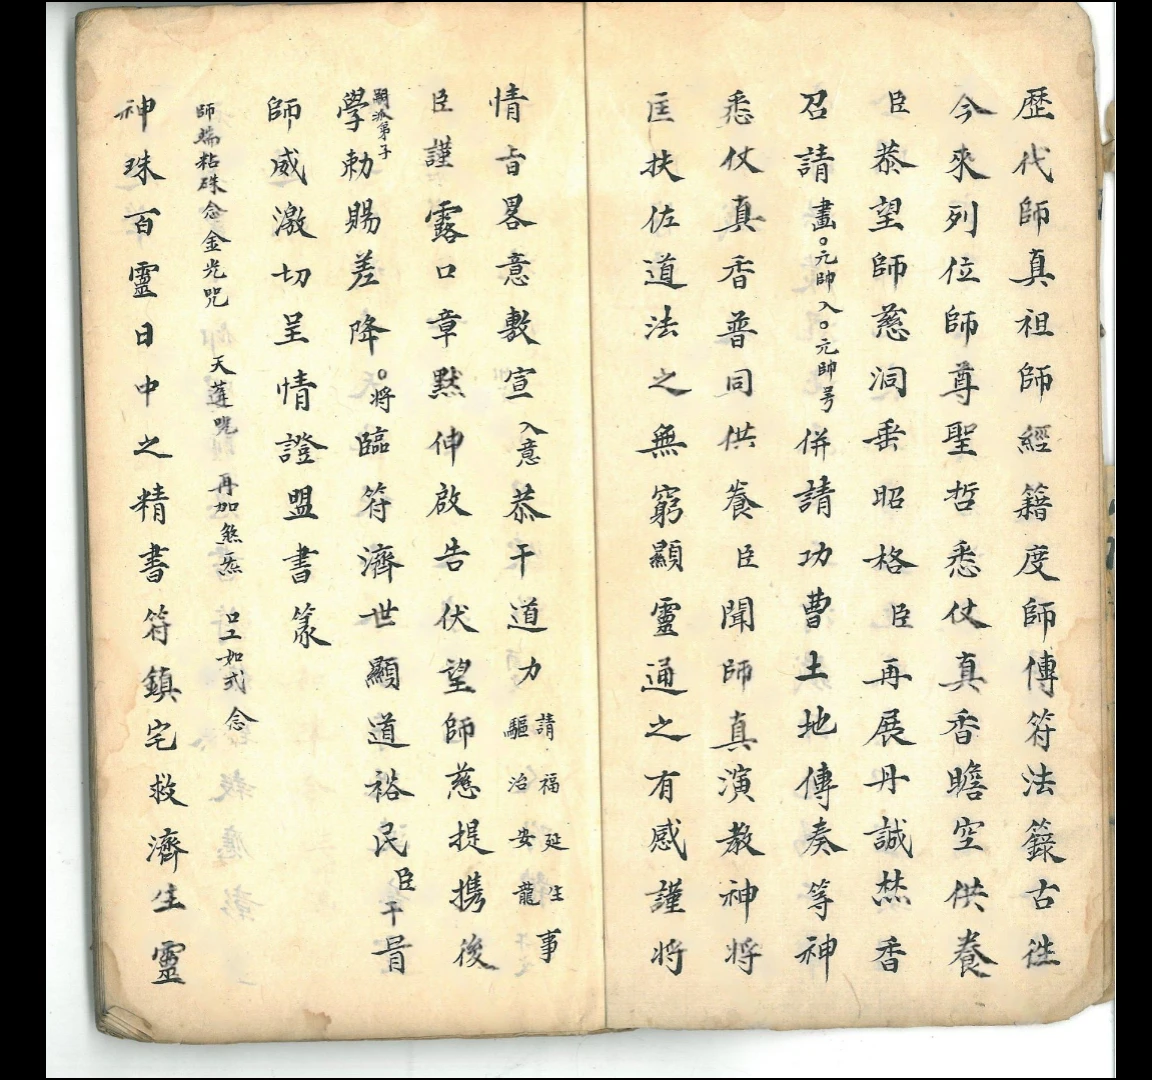 歷代師真祖師經籍度師傳符法籙古徃
今來列位師尊聖哲悉仗真香瞻空供養
臣恭望師慈洞垂昭格臣再展丹誠焚香
召請畫○元帥入○元帥号併請功曹土地傳奏等神
悉仗真香普同供養臣聞師真演教神將
匡扶佐道法之無窮顯靈通之有感謹將
情旨畧意敷宣入意恭干道力請福延生事驅治安龍
臣謹露口章黙伸啟告伏望師慈提携後
學嗣派弟子勅賜差降○將臨符濟世顯道裕民臣干冐
師威激切呈情證盟書篆
師端粘硃念金光咒 天蓬咒 再加煞炁 念
神珠百靈日中之精書符鎮宅救濟生靈